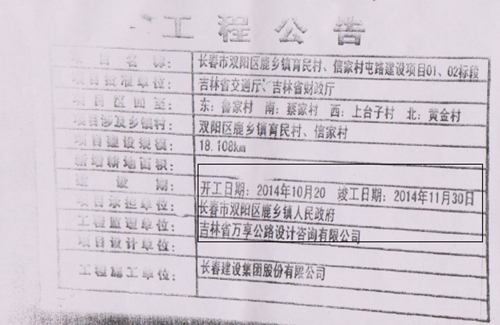 工程公告
项目名称： 长春市双阳区鹿乡镇育民村、信家村屯路建设项目01、02标段
项目批准单位： 吉林省交通厅、吉林省财政厅
项目区四至： 东：鲁家村 南：蔡家村 西：上台子村 北：黄金村
项目涉及乡镇村： 双阳区鹿乡镇育民村、信家村
项目建设规模： 18.108km
新增耕地面积：
建设期： 开工日期：2014年10月20 竣工日期：2014年11月30日
项目承担单位： 长春市双阳区鹿乡镇人民政府
工程监理单位： 吉林省万亨公路设计咨询有限公司
项目设计单位：
工程施工单位： 长春建设集团股份有限公司